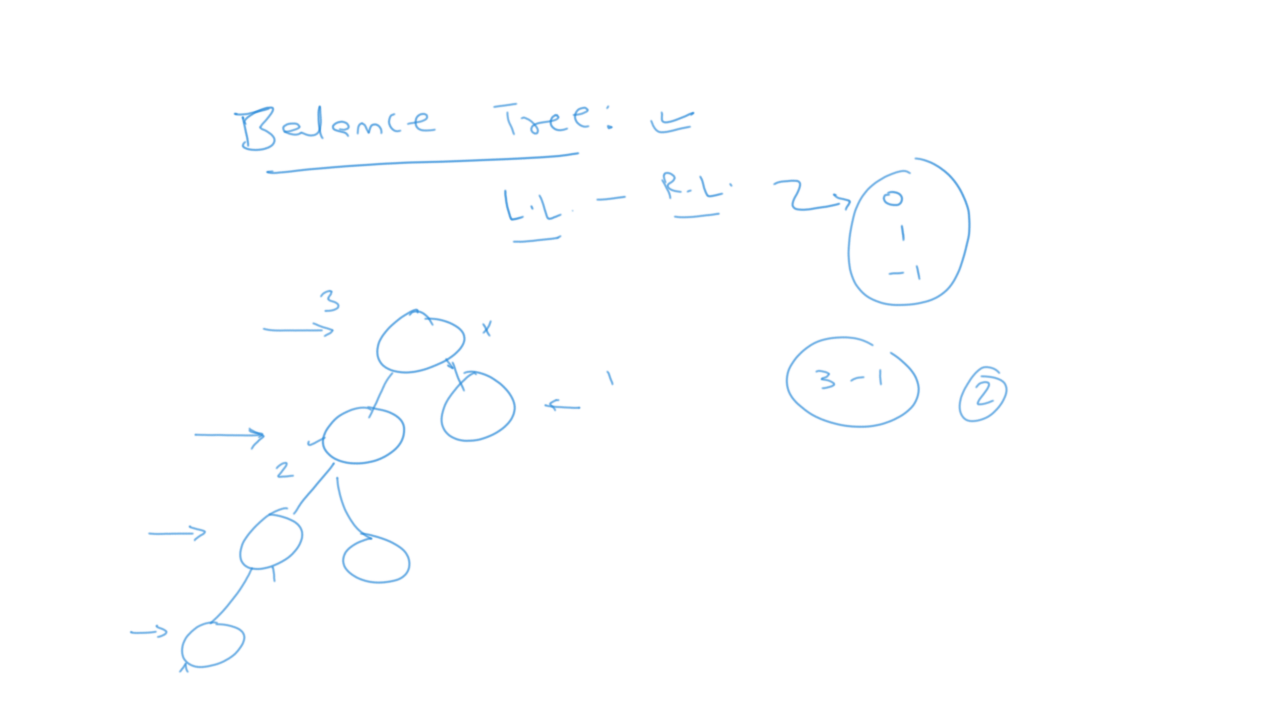 Balance Tree:
L.L. - R.L.
0
1
-1
3
x
3-1
2
1
2
1